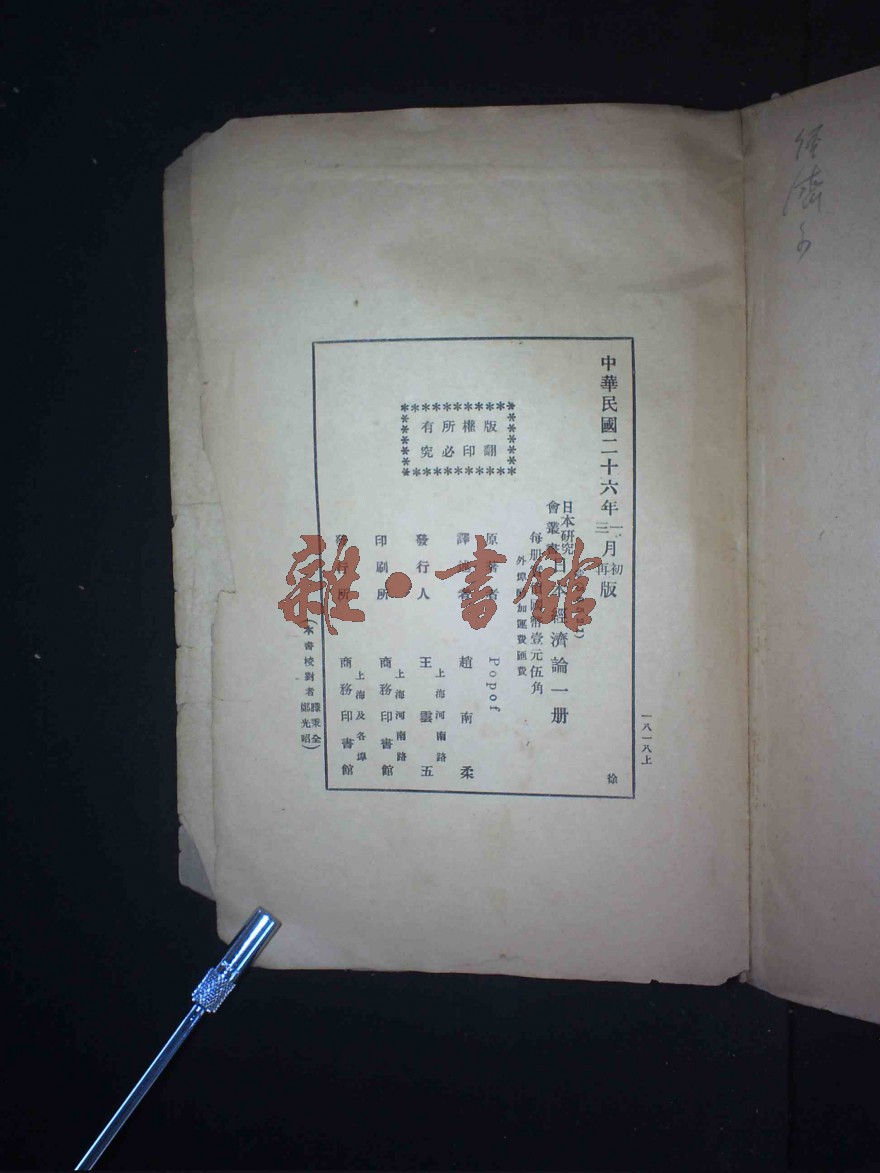 中華民國二十六年一月初版
三月再版
日本研究會叢書 日本經濟論一册
每册 國幣壹元伍角
外埠 加運費匯費
原著者 Popof
譯述者 趙南柔
發行人 王雲五
上海河南路
印刷所 商務印書館
上海河南路
發行所 商務印書館
上海及各埠
版權所有
翻印必究
(本書校對者 滕秉全 鄭光昭)
一八一八上
徐
經濟
雜·書館